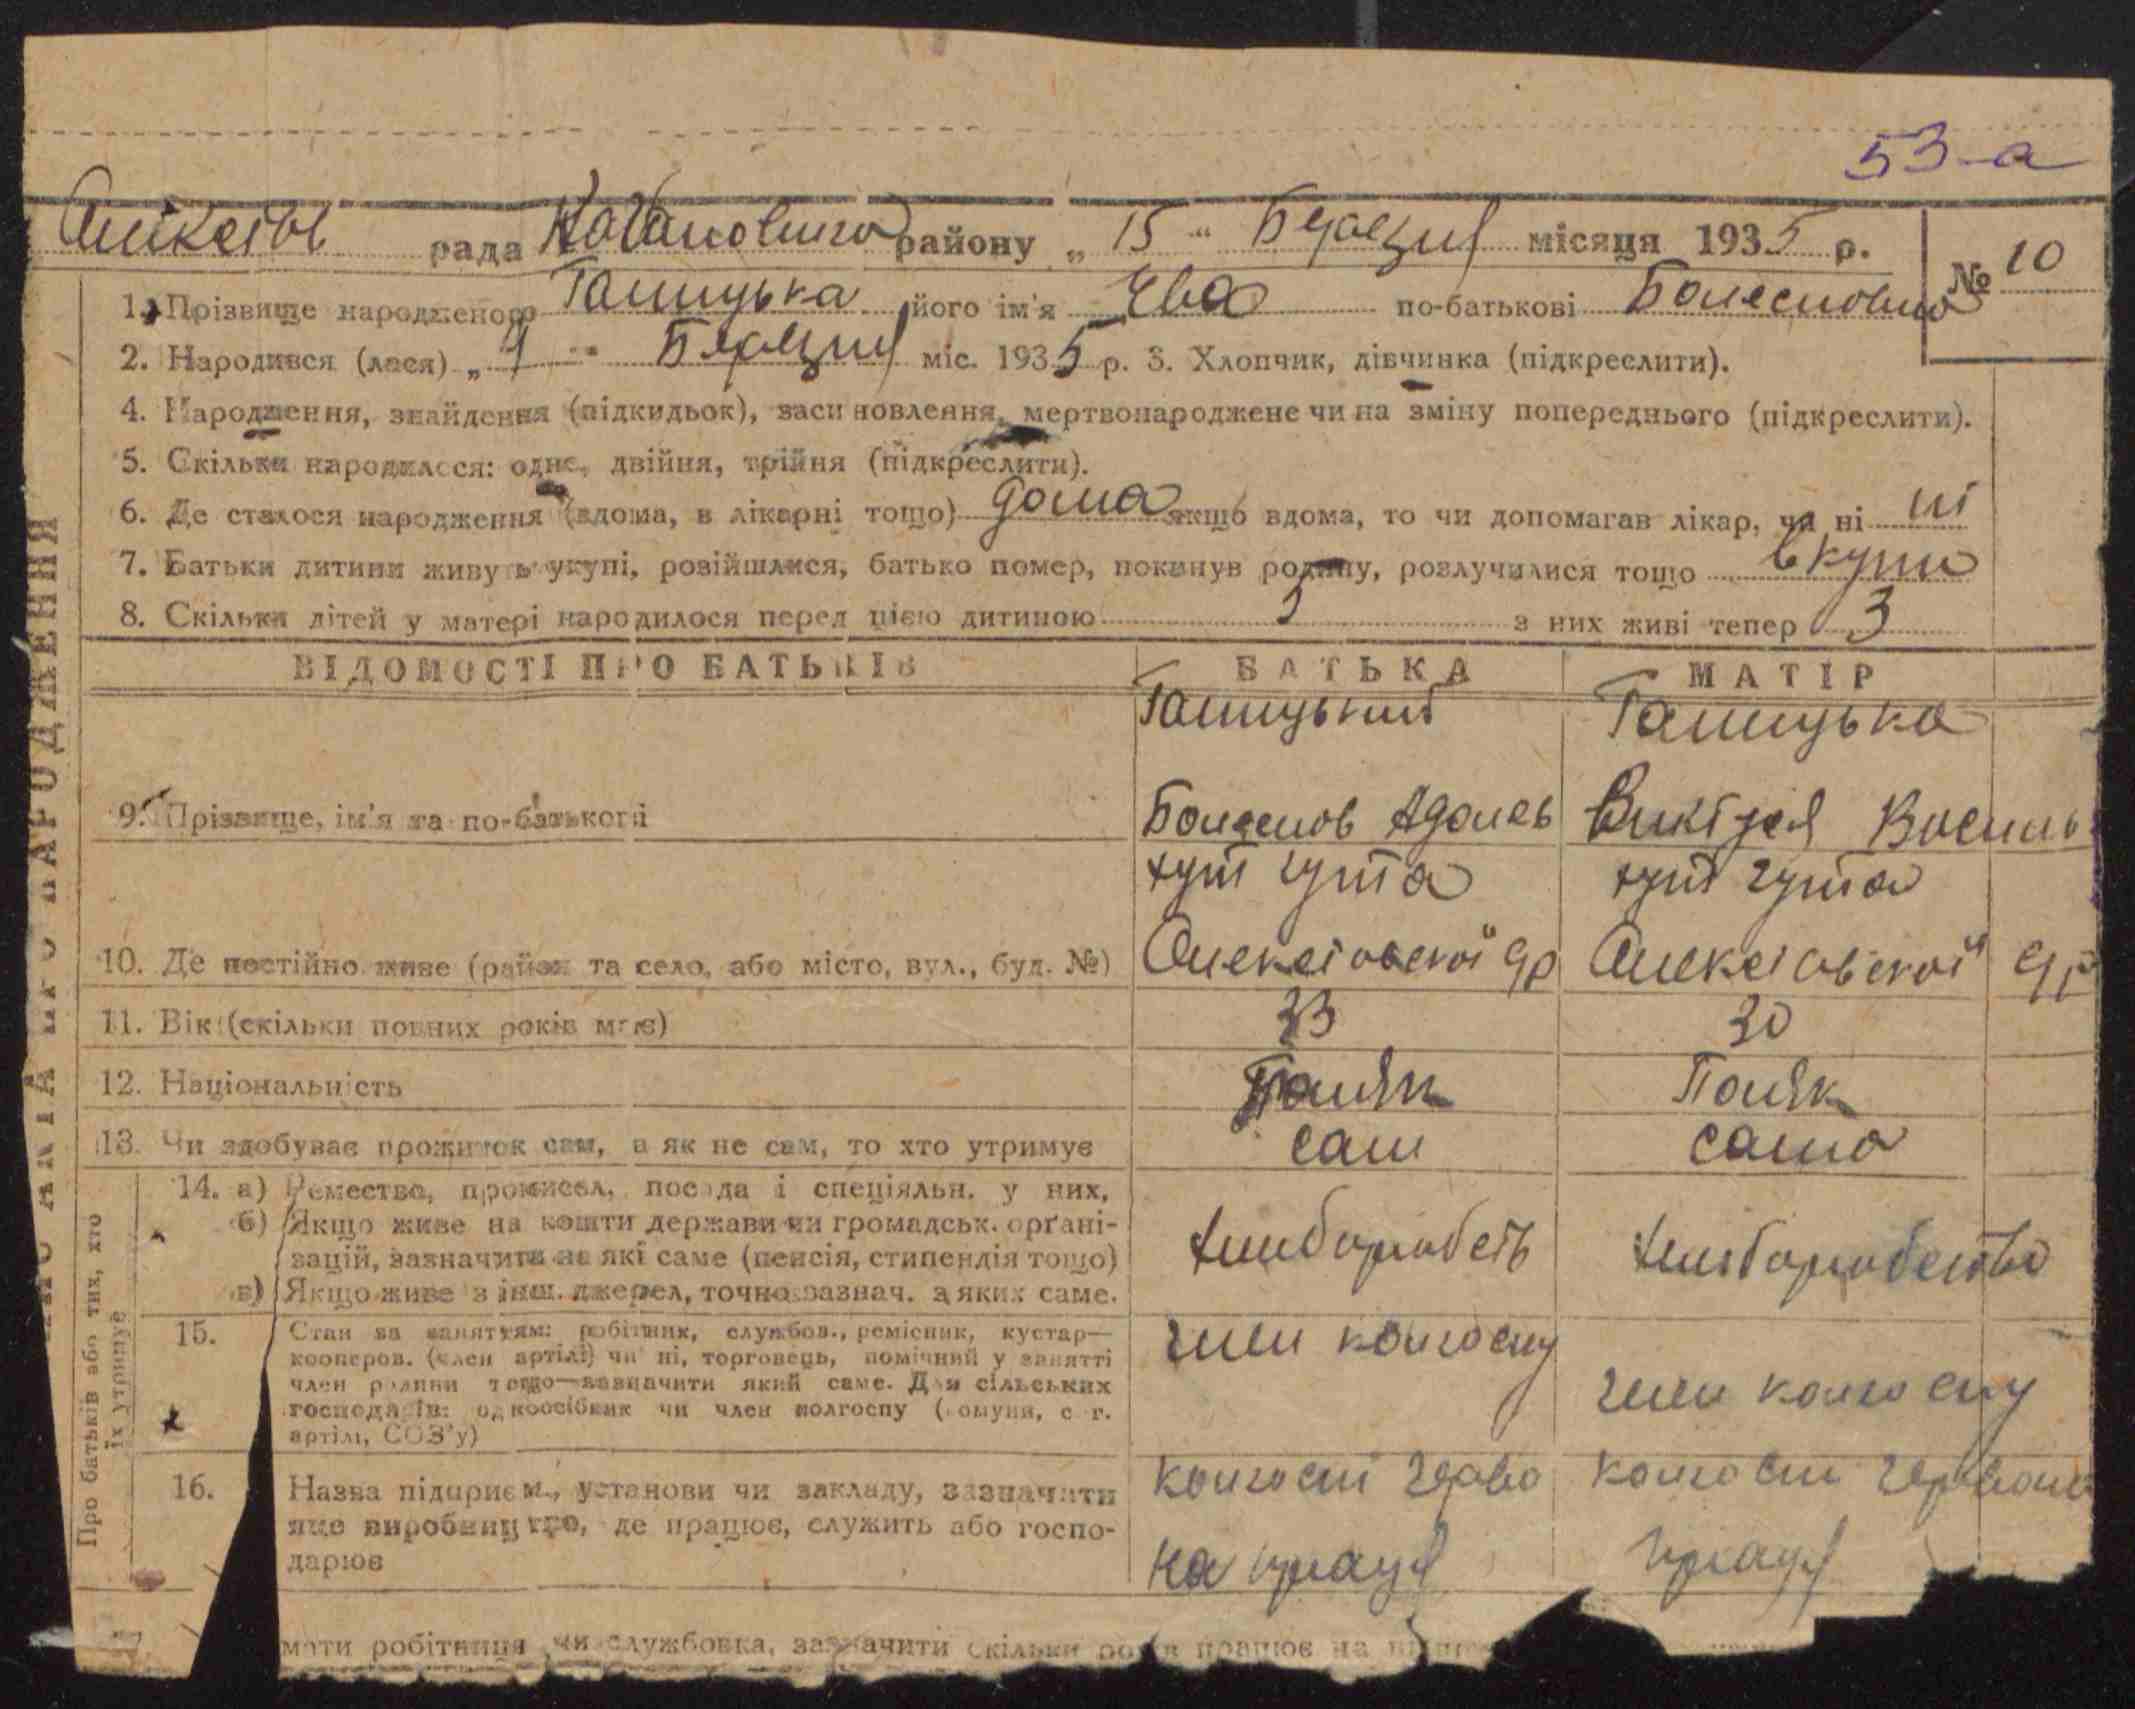 53-а
рада Кагановичского району „ 15 " Березня місяця 1935 р.
№ 10
1. Прізвище народженого Галицька його ім'я Ева по-батькові Болеславовна
2. Народився (лася) „ 9 " Березня міс. 1935 р. 3. Хлопчик, дівчинка (підкреслити).
4. Народження, знайдення (підкидьок), засиновлення, мертвонароджене чи на зміну попереднього (підкреслити).
5. Скільки народилося: одне, двійня, трійня (підкреслити).
6. Де сталося народження (вдома, в лікарні тощо) дома якщо вдома, то чи допомагав лікар, чи ні ні
7. Батьки дитини живуть укупі, розійшлися, батько помер, покинув родину, розлучилися тощо вкупи
8. Скільки дітей у матері народилося перед цією дитиною 5 з них живі тепер 3
ВІДОМОСТІ ПРО БАТЬКІВ БАТЬКА МАТІР
Галицький Галицька
9. Прізвище, ім'я та по-батькові Адоль Василь
хут гута хут гута
10. Де постійно живе (район та село, або місто, вул., буд. №)
11. Вік (скільки повних років має) 33 30
12. Національність Поляк Поляк
13. Чи здобуває прожиток сам, а як не сам, то хто утримує сам сама
Про батьків або тих, хто їх утримує
14. а) Ремество, промисел, посада і спеціяльн. у них,
б) Якщо живе на кошти держави чи громадськ. орґані-
зацій, зазначити на які саме (пенсія, стипендія тощо)
в) Якщо живе з інш. джерел, точно зазнач. з яких саме.
15. Стан за заняттям: робітник, службов., ремісник, кустар—
кооперов. (член артілі) чи ні, торговець, помічний у занятті
член родини тощо—зазначити який саме. Для сільських
господарів: одноосібник чи член колгоспу (комуни, с.-г.
артілі, СОЗ'у)
член колгоспу член колгоспу
16. Назва підприєм., установи чи закладу, зазначити
яке виробництво, де працює, служить або госпо-
дарює
колгосп Черво колгосп Червона
на праця праця
мати робітниця чи службовка, зазначити скільки років працює на